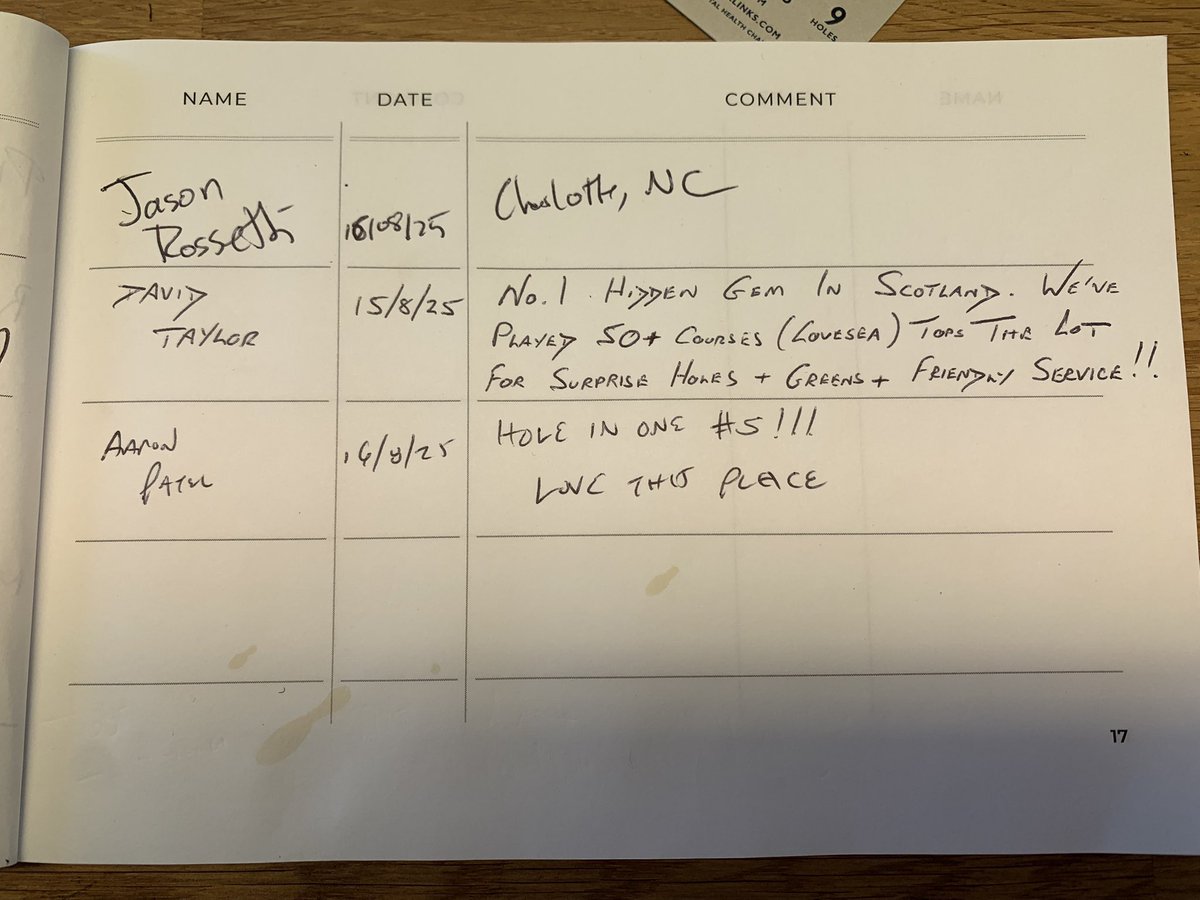 9
HOLES
LINKS.COM
NAME DATE COMMENT
Jason
Rossetti
/08/25
Charlotte, NC
DAVID
TAYLOR
15/8/25
No. 1 HIDDEN GEM IN SCOTLAND. WE'VE
PLAYED 50+ COURSES (COVESEA) TOPS THE LOT
FOR SURPRISE HOLES + GREENS + FRIENDLY SERVICE!!
AARON
PATEL
16/8/25
HOLE IN ONE #5!!!
LOVE THIS PLACE
17